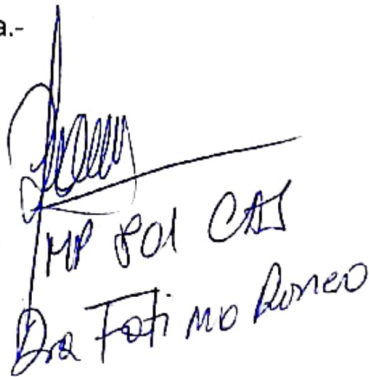 a.-
MP 801 CAS
Dra Fatima Romeo